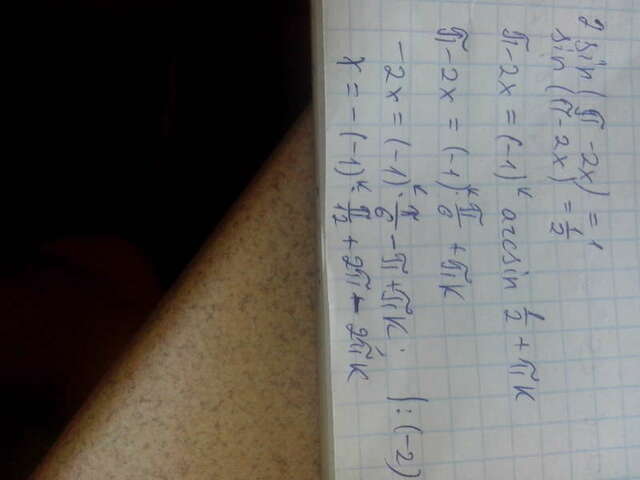 2 sin (π - 2x) = 1
sin (π - 2x) = 1/2
π - 2x = (-1)^k arcsin 1/2 + πk
π - 2x = (-1)^k · π/6 + πk
-2x = (-1)^k · π/6 - π + πk. |:(-2)
x = -(-1)^k · π/12 + 2π - 2πk